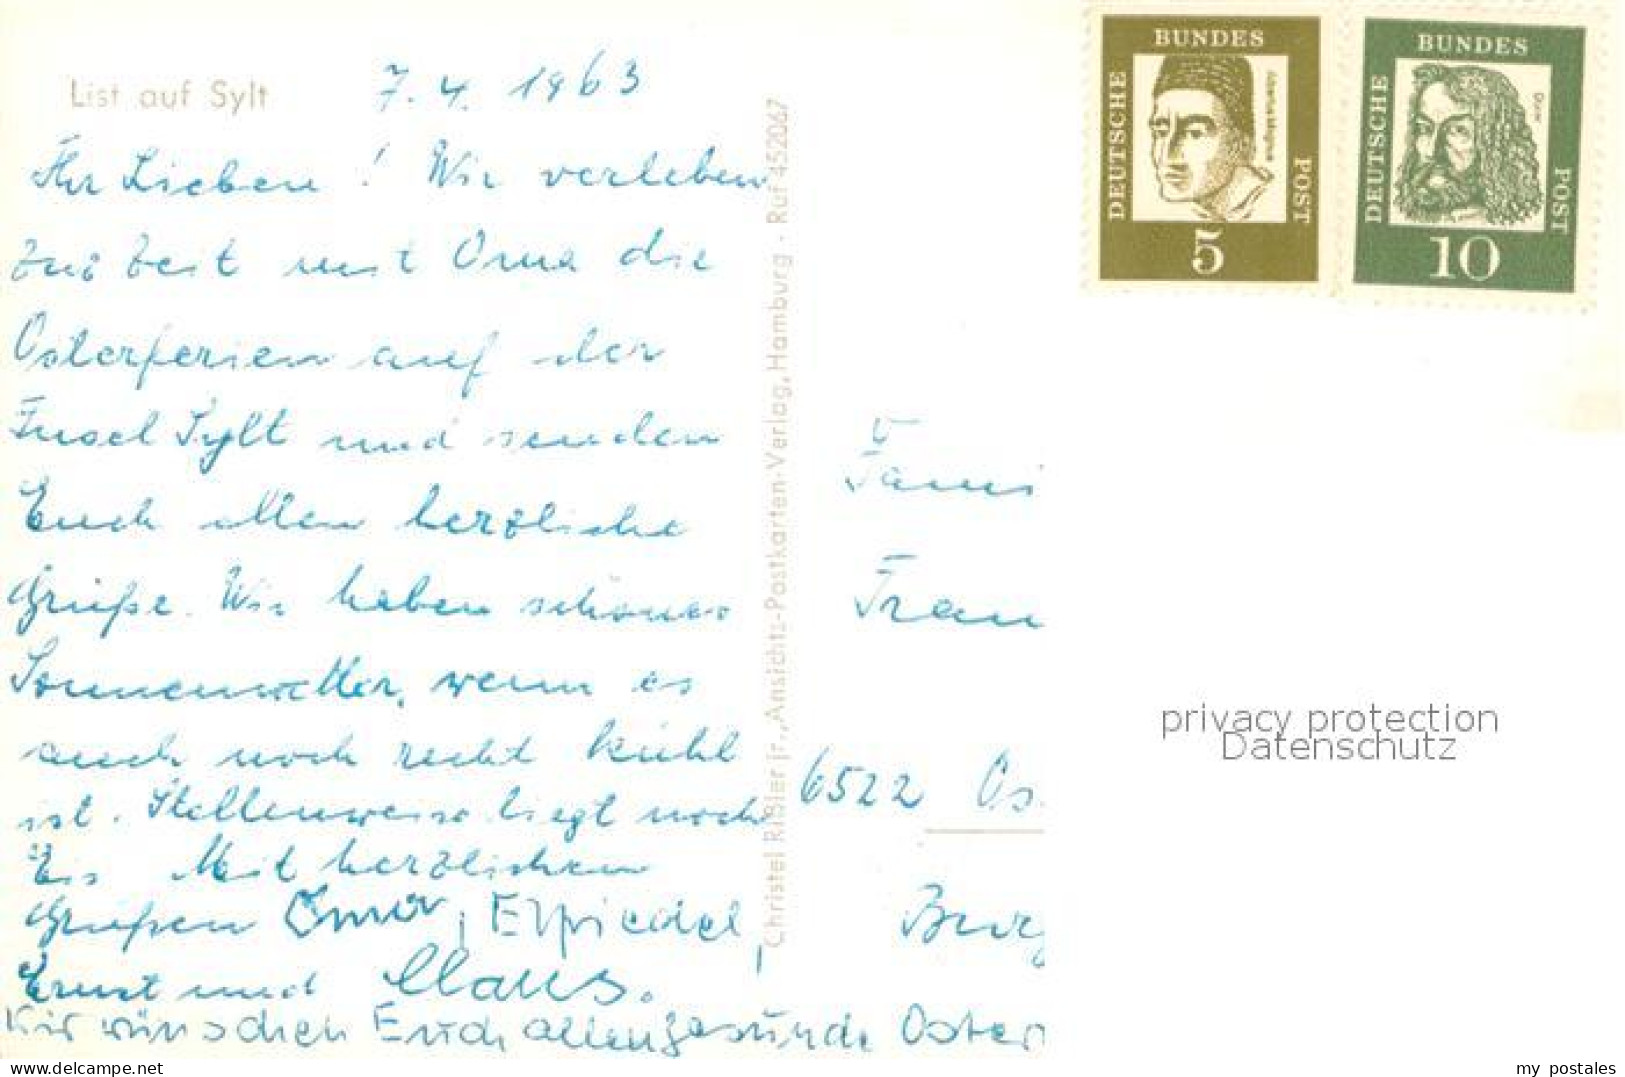 List auf Sylt
7.4.1963
Ihr Lieben! Wir verleben
zur Zeit mit Oma die
Osterferien auf der
Insel Sylt und senden
Euch allen herzliche
Grüße. Wir haben schönes
Sonnenwetter, wenn es
auch noch recht kühl
ist. Stellenweise liegt noch
Eis Mit herzlichen
Grüßen Oma, Elfriedel,
Ernst und Claus.
Wir wünschen Euch allen gesunde Oster
Christel Rißler jr., Ansichts-Postkarten-Verlag, Hamburg · Ruf 452067
DEUTSCHE BUNDES POST
Albertus Magnus
5
DEUTSCHE BUNDES POST
Dürer
10
Fami
Frau
6522 Os
Burg
privacy protection
Datenschutz
delcampe.net
my_postales